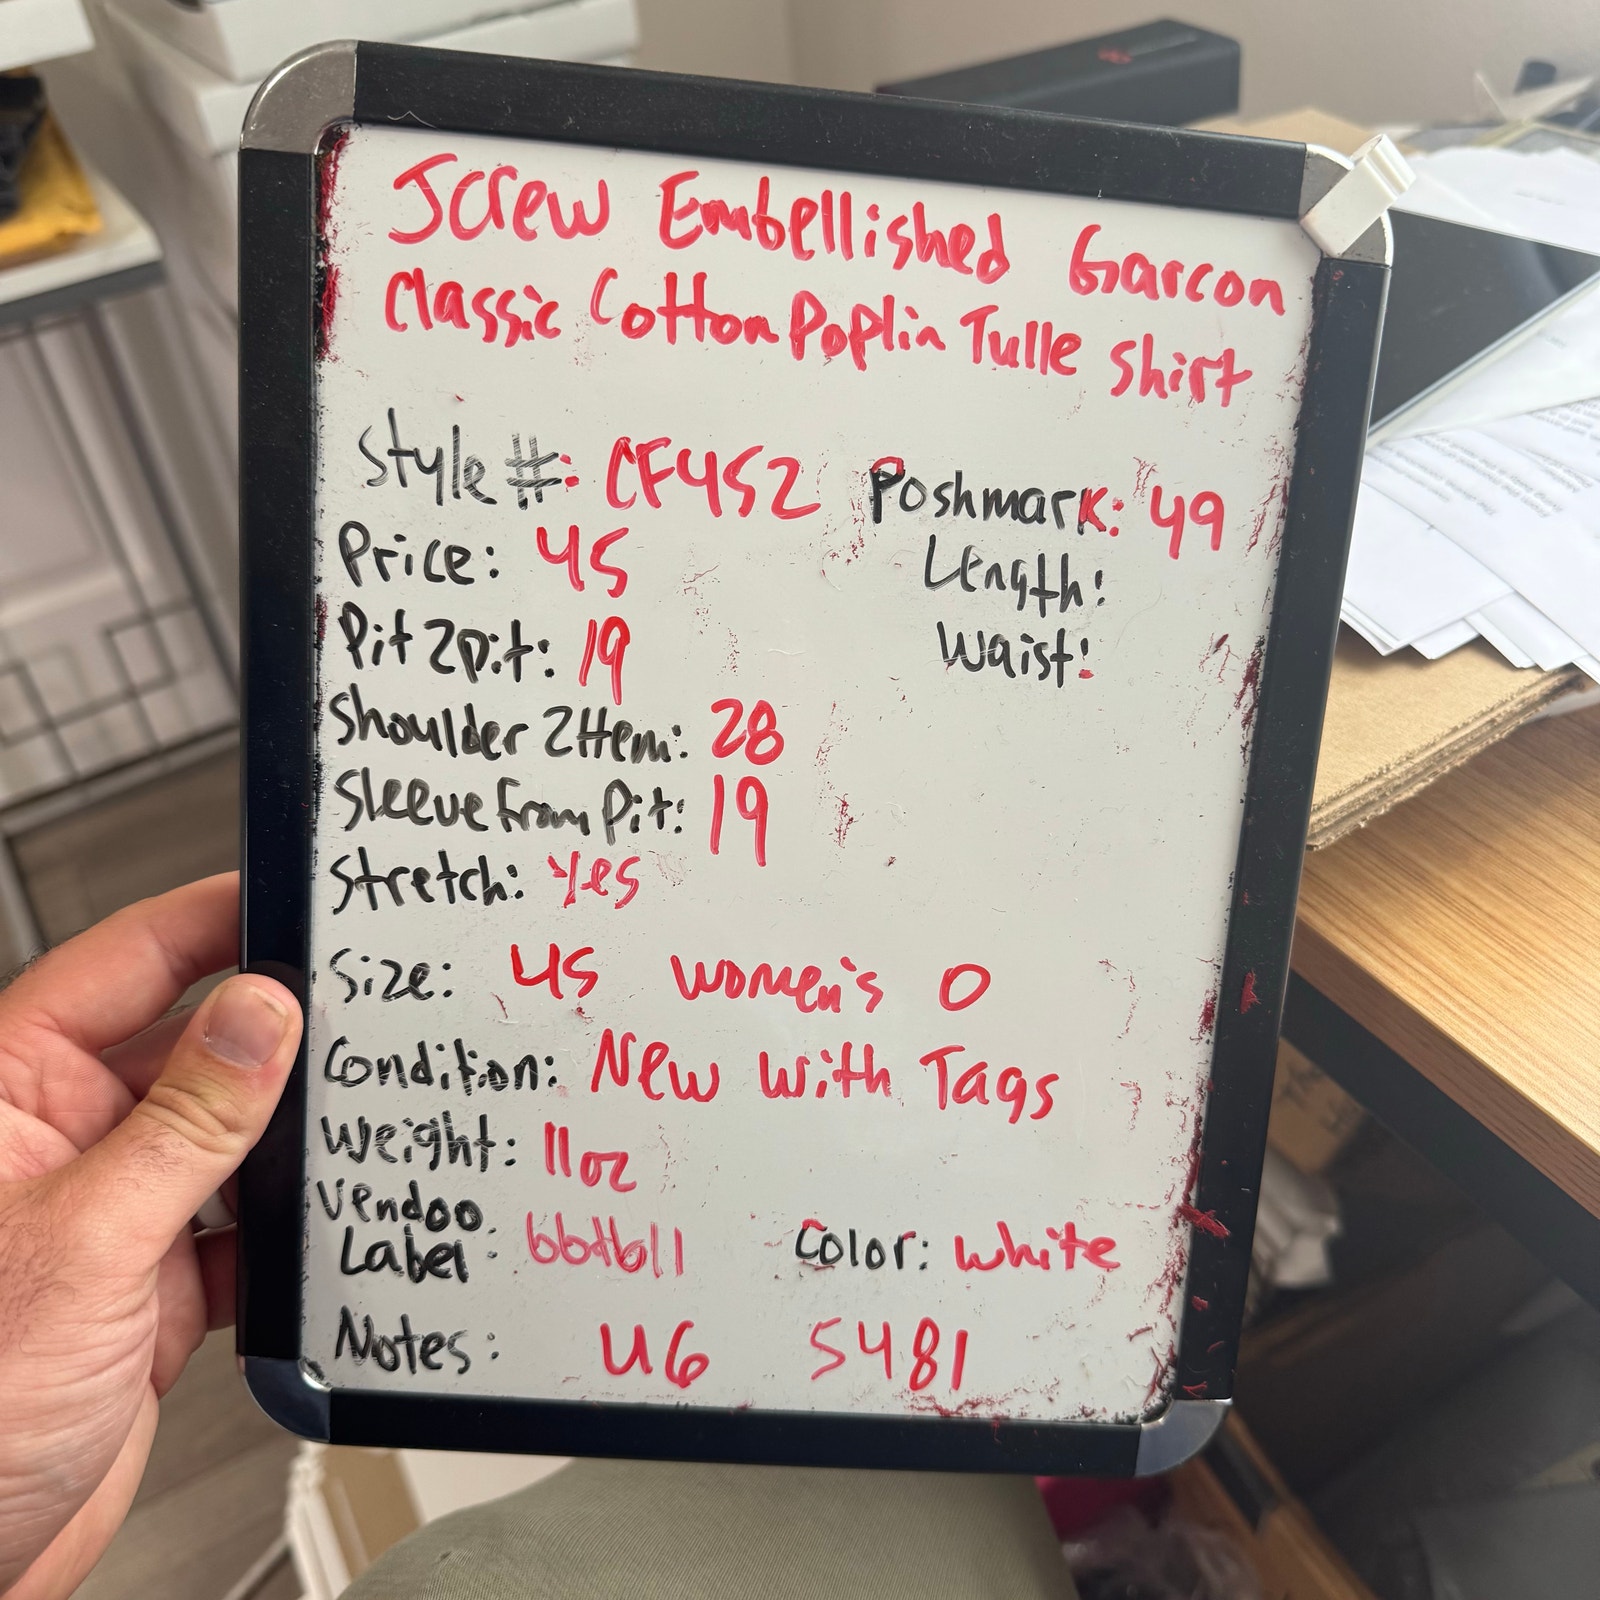 Jcrew Embellished Garcon
Classic Cotton Poplin Tulle Shirt
Style #: CF452 Poshmark: 49
Price: 45 Length:
Pit 2pit: 19 Waist:
Shoulder 2Hem: 28
Sleeve from Pit: 19
Stretch: Yes
Size: US women's 0
Condition: New with Tags
Weight: 11oz
Vendoo
Label: Color: white
Notes: U6 5481